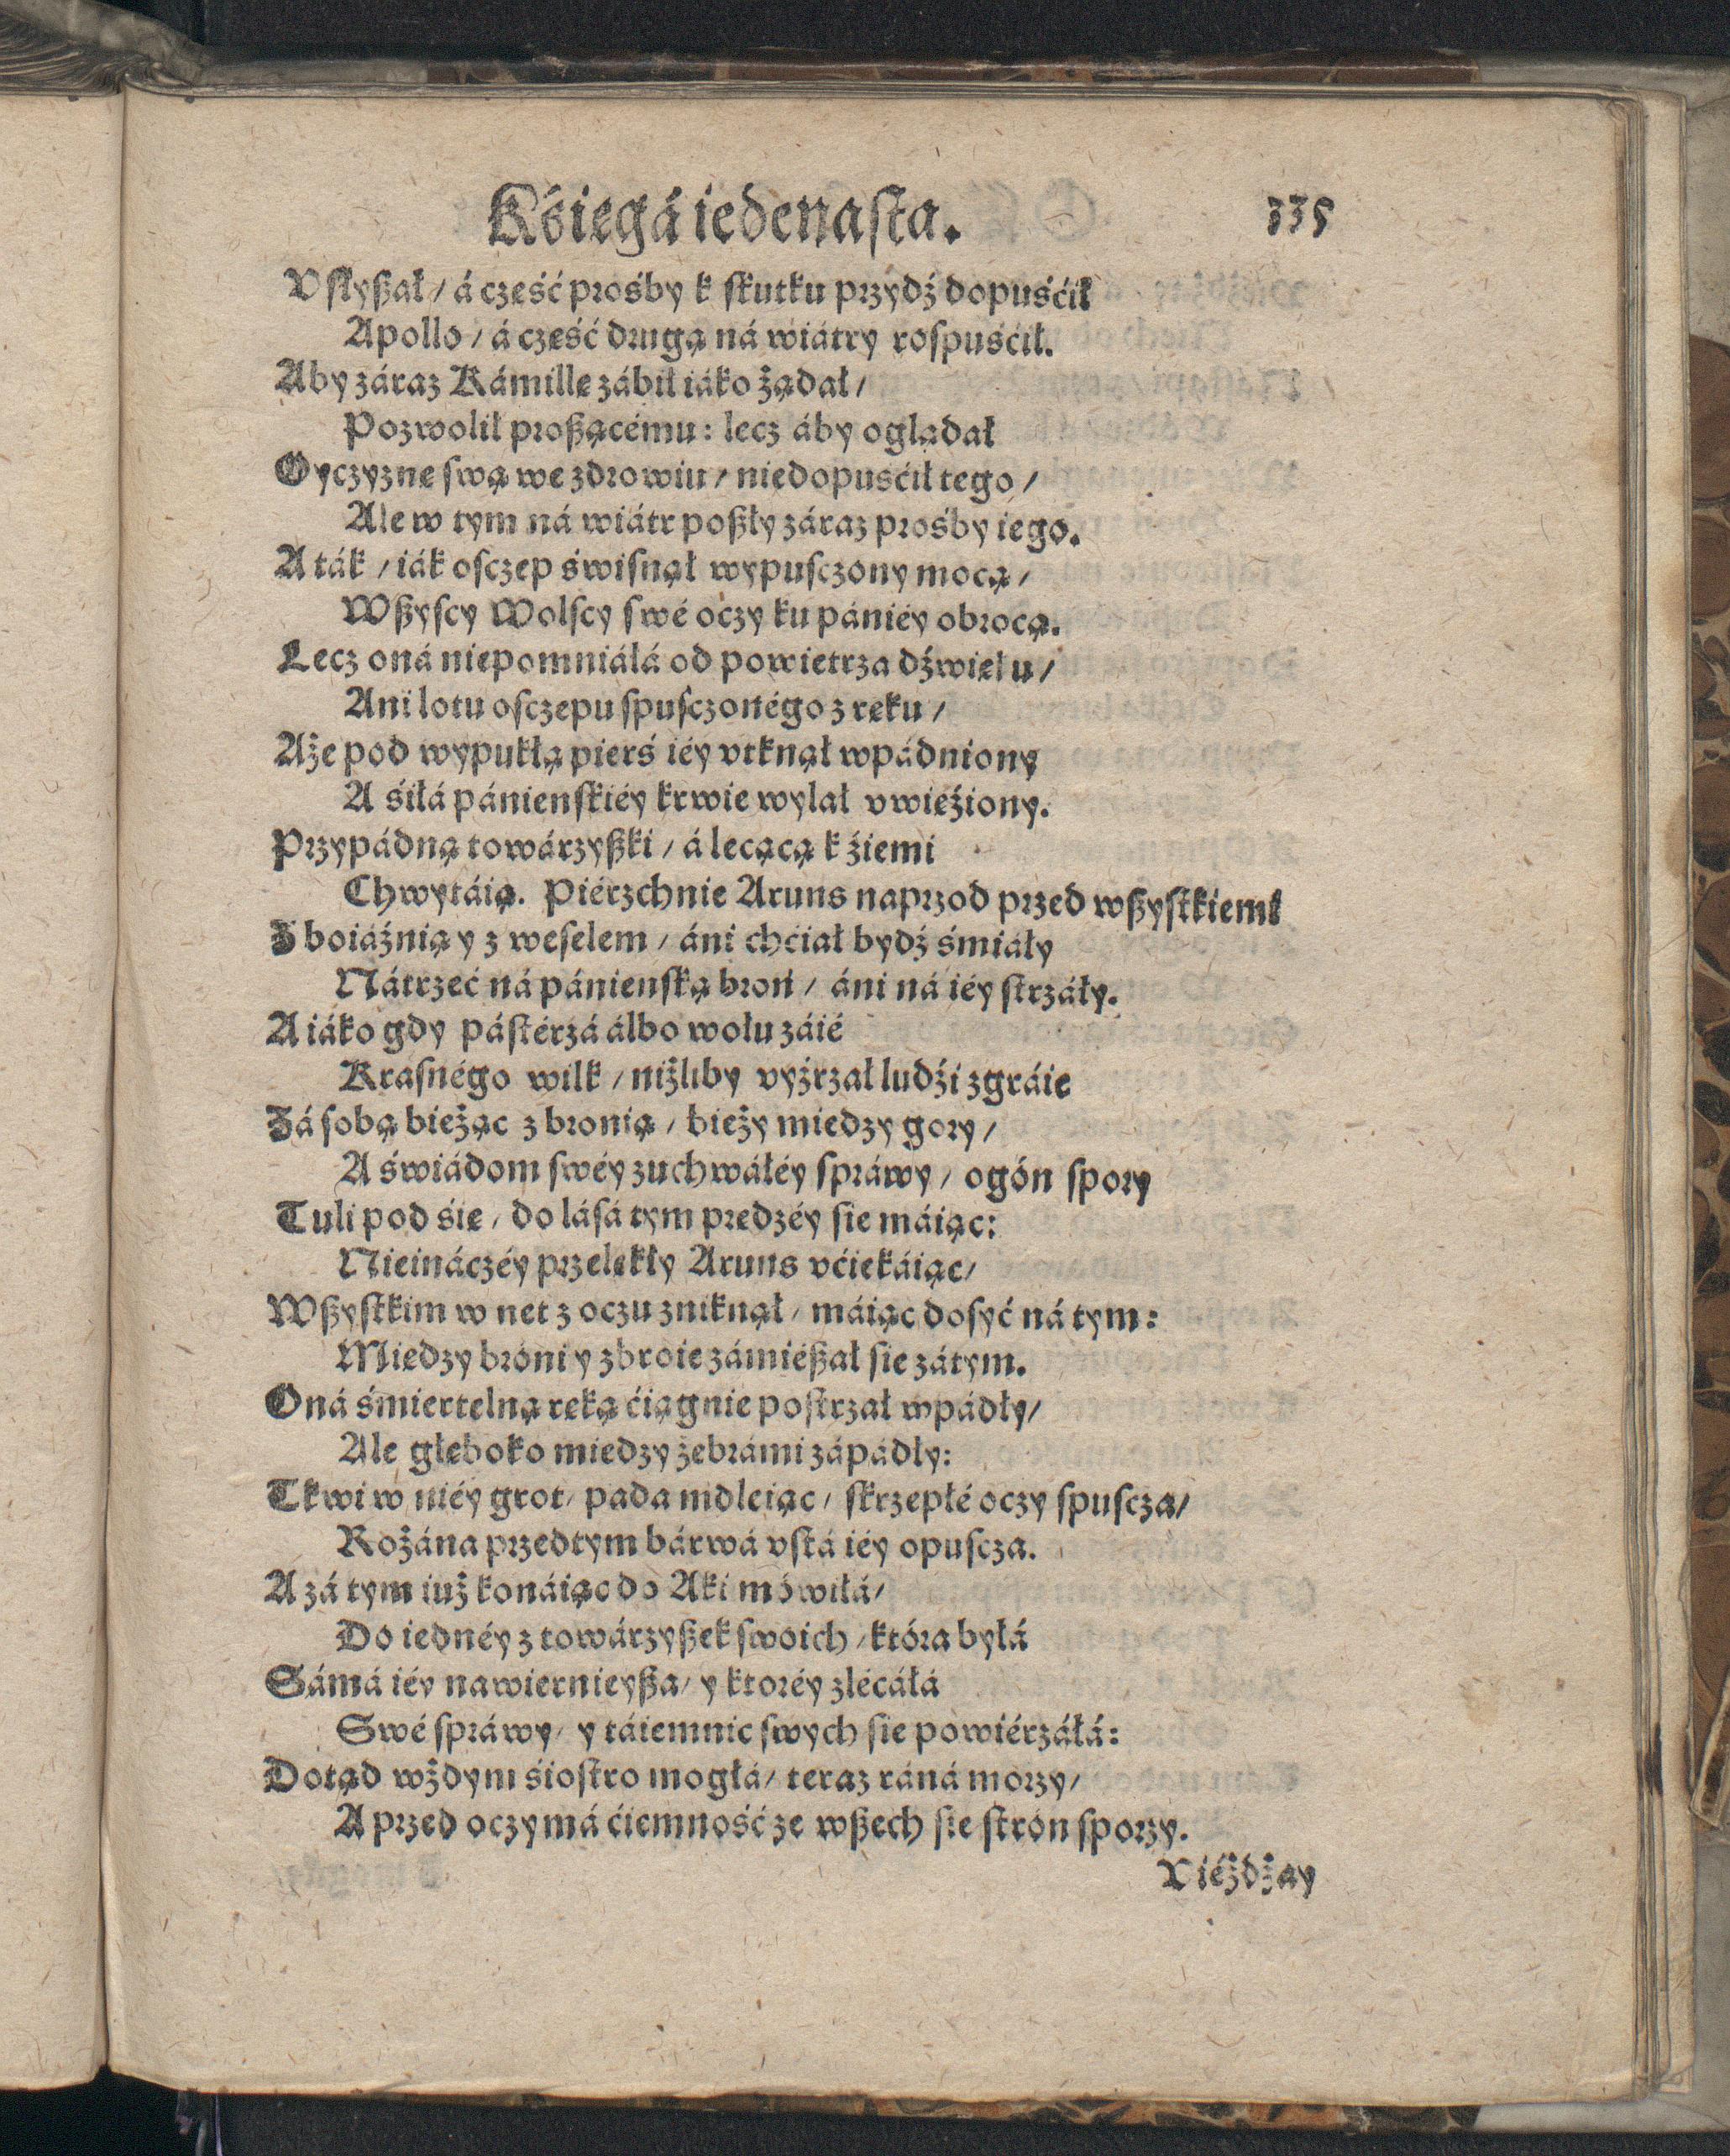 Kśięgá iedenaſta. 335
Vſłyßał / á część prośby k ſkutku przydź dopuśćił
Apollo / á część drugą ná wiátry roſpuśćił.
Aby záraz Kámillę zábił iáko żądał /
Pozwolił proßącému: lecz áby oglądał
Oyczyznę ſwą we zdrowiu / niedopuśćił tego /
Ale w tym ná wiátr poßły záraz prośby iego.
A ták / iák oſczep świſnął wypuſczony mocą /
Wßyſcy Wolſcy ſwé oczy ku pániéy obrocą.
Lecz oná niepomniáłá od powietrza dźwięku /
Ani lotu oſczepu ſpuſczonégo z ręku /
Aże pod wypukłą pierś iéy vtknął wpádniony
A śiłá pánienſkiéy krwie wylał vwięźiony.
Przypádną towárzyßki / á lecącą k źiemi
Chwytáią. Piérzchnie Aruns naprzod przed wßyſtkiemi
Z boiáźnią y z weſelem / áni chćiał bydź śmiáły
Nátrzeć ná pánienſką broń / áni ná iéy ſtrzáły.
A iáko gdy páſtérzá álbo wołu záié
Kraſnégo wilk / niżliby vyźrzał ludźi zgráie
Zá ſobą bieżąc z bronią / bieży miedzy gory /
A świádom ſwéy zuchwáłéy ſpráwy / ogón ſpory
Tuli pod śię / do láſá tym prędzéy ſie máiąc:
Nieináczéy przelękły Aruns vćiekáiąc /
Wßyſtkim w net z oczu zniknął / máiąc doſyć ná tym:
Miedzy bróni y zbroie zámiéßał ſie zátym.
Oná śmiertelną ręką ćiągnie poſtrzał wpádły /
Ale głęboko miedzy żebrámi zápádły:
Tkwi w niéy grot / pada mdleiąc / ſkrzepłé oczy ſpuſcza /
Rożána przedtym bárwá vſtá iéy opuſcza.
A zá tym iuż konáiąc do Aki mówiłá /
Do iednéy z towárzyßek ſwoich / która byłá
Sámá iéy nawiernieyßa / y ktoréy zlécáłá
Swé ſpráwy / y táiemnic ſwych ſie powiérzáłá:
Dotąd wżdym śioſtro mogłá / teraz ráná morzy /
A przed oczymá ćiemność ze wßech ſie ſtrón ſporzy.
Viéżdżay